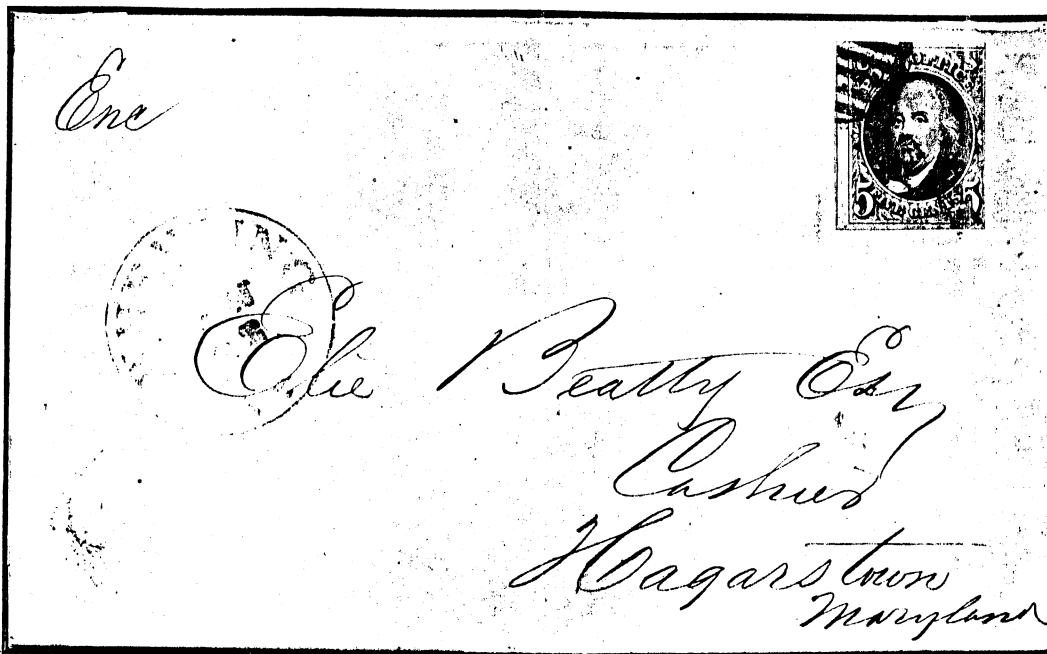 Enc
5 5
Elie Beatty Esq
Cashier
Hagarstown
Maryland